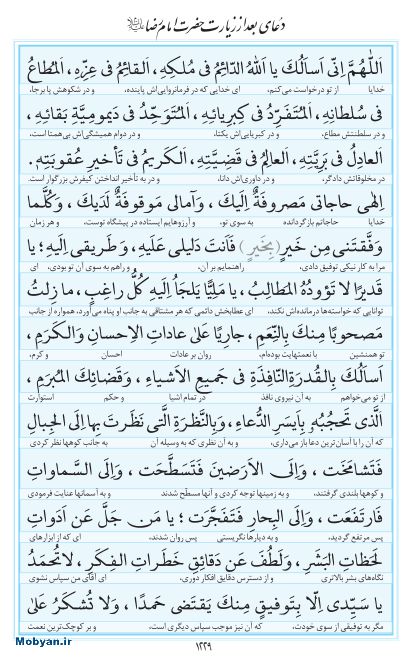 دعای بعد از زیارت حضرت امام رضا علیه‌السلام
اَللّٰهُمَّ اِنّی اَسأَلُكَ یا اَللهُ الدّائِمُ فی مُلکِهِ، اَلقائِمُ فی عِزِّهِ، اَلمُطاعُ
خدایا از تو درخواست می‌کنم، ای خدایی که در فرمانروایی‌اش پاینده، و در شکوهش پا برجا،
فی سُلطانِهِ، اَلمُتَفَرِّدُ فی کِبرِیائِهِ، اَلمُتَوَحِّدُ فی دَیمومِیَّةِ بَقائِهِ،
و در سلطنتش مطاع، و در کبریایی‌اش یکتا، و در دوام همیشگی‌اش بی‌همتا است.
اَلعادِلُ فی بَرِیَّتِهِ، اَلعالِمُ فی قَضِیَّتِهِ، اَلکَریمُ فی تَأخیرِ عُقوبَتِهِ.
در مخلوقاتش دادگر، و در داوری‌اش دانا، و در به تأخیر انداختن کیفرش بزرگوار است.
اِلٰهی حاجاتی مَصروفَةٌ اِلَیكَ، وَآمالی مَوقوفَةٌ لَدَیكَ، وَکُلَّما
خدایا حاجاتم بازگردانده به سوی تو، و آرزوهایم ایستاده در پیشگاه توست، و هر زمان
وَفَّقتَنی مِن خَیرٍ (بِخَیرٍ) فَاَنتَ دَلیلی عَلَیهِ، وَطَریقی اِلَیهِ؛ یا
مرا به کار نیکی توفیق دادی، راهنمایم بر آن، و راهم به سوی آن تو بودی، ای
قَدیرًا لا تَؤودُهُ المَطالِبُ، یا مَلِیًّا یَلجَأُ اِلَیهِ کُلُّ راغِبٍ، ما زِلتُ
توانایی که خواسته‌ها درمانده‌اش نکند، ای عطابخش دائمی که هر مشتاقی به جانب او پناه می‌آورد، همواره از جانب
مَصحوبًا مِنكَ بِالنِّعَمِ، جارِیًا عَلیٰ عاداتِ الاِحسانِ وَالکَرَمِ،
تو همنشین با نعمتهایت بوده‌ام، روان بر عادات احسان و کرم،
اَسأَلُكَ بِالقُدرَةِ النّافِذَةِ فی جَمیعِ الاَشیاءِ، وَقَضائِكَ المُبرَمِ،
از تو می‌خواهم به آن نیروی نافذ در تمام اشیا و حکم استوارت
الَّذی تَحجُبُهُ بِاَیسَرِ الدُّعاءِ، وَبِالنَّظرَةِ الَّتی نَظَرتَ بِها اِلَی الجِبالِ
که آن را با آسان‌ترین دعا باز می‌داری، و به آن نظری که به وسیله آن به جانب کوهها نظر کردی
فَتَشامَخَت، وَاِلَی الاَرَضینَ فَتَسَطَّحَت، وَاِلَی السَّماواتِ
و کوهها بلندی گرفتند، و به زمینها توجه کردی و آنها مسطح شدند و به آسمانها عنایت فرمودی
فَارتَفَعَت، وَاِلَی البِحارِ فَتَفَجَّرَت؛ یا مَن جَلَّ عَن اَدَواتِ
پس مرتفع گردید، و به دریاها نگریستی پس روان شدند، ای که از ابزارهای
لَحَظاتِ البَشَرِ، وَلَطُفَ عَن دَقائِقِ خَطَراتِ الفِکَرِ، لا تُحمَدُ
نگاه‌های بشر بالاتری و از دسترس دقایق افکار دوری، ای آقای من سپاس نشوی
یا سَیِّدی اِلّا بِتَوفیقٍ مِنكَ یَقتَضی حَمدًا، وَلا تُشکَرُ عَلیٰ
مگر به توفیقی از سوی خودت، که آن نیز موجب سپاس دیگری است، و بر کوچک‌ترین نعمت
۱۲۲۹
Mobyan.ir